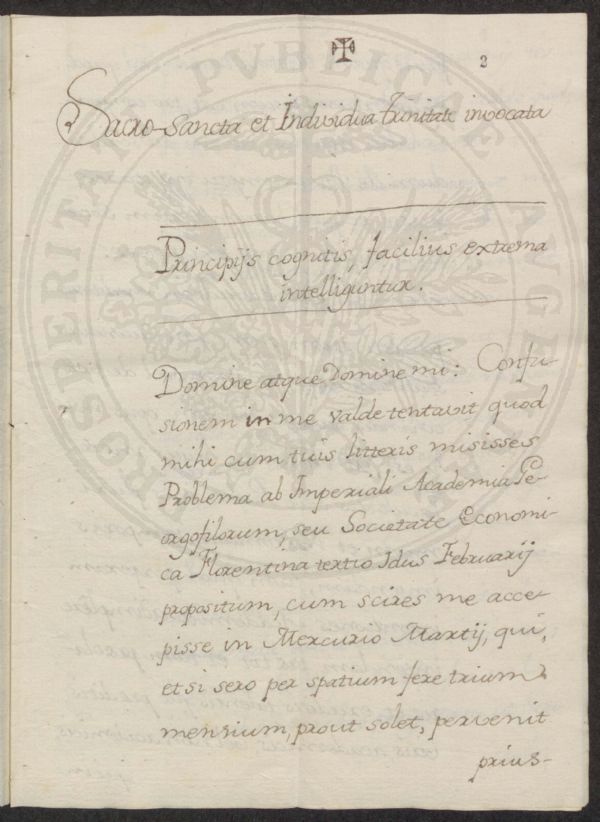 ✠
2
Sacro-Sancta et Individua trinitate invocata
Principijs cognitis, facilius extrema
intelliguntur.
Domine atque Domine mi: Confu-
sionem in me valde tentavit quod
mihi cum tuis litteris misisses
Problema ab Imperiali Academia Ge-
orgofilorum, seu Societate Economi-
ca Florentina tertio Idus Februarij
propositum, cum scires me acce-
pisse in Mercurio Martij, qui,
et si sero per spatium fere trium
mensium, prout solet, pervenit
prius-
PROSPERITATI PVBLICAE AVGE